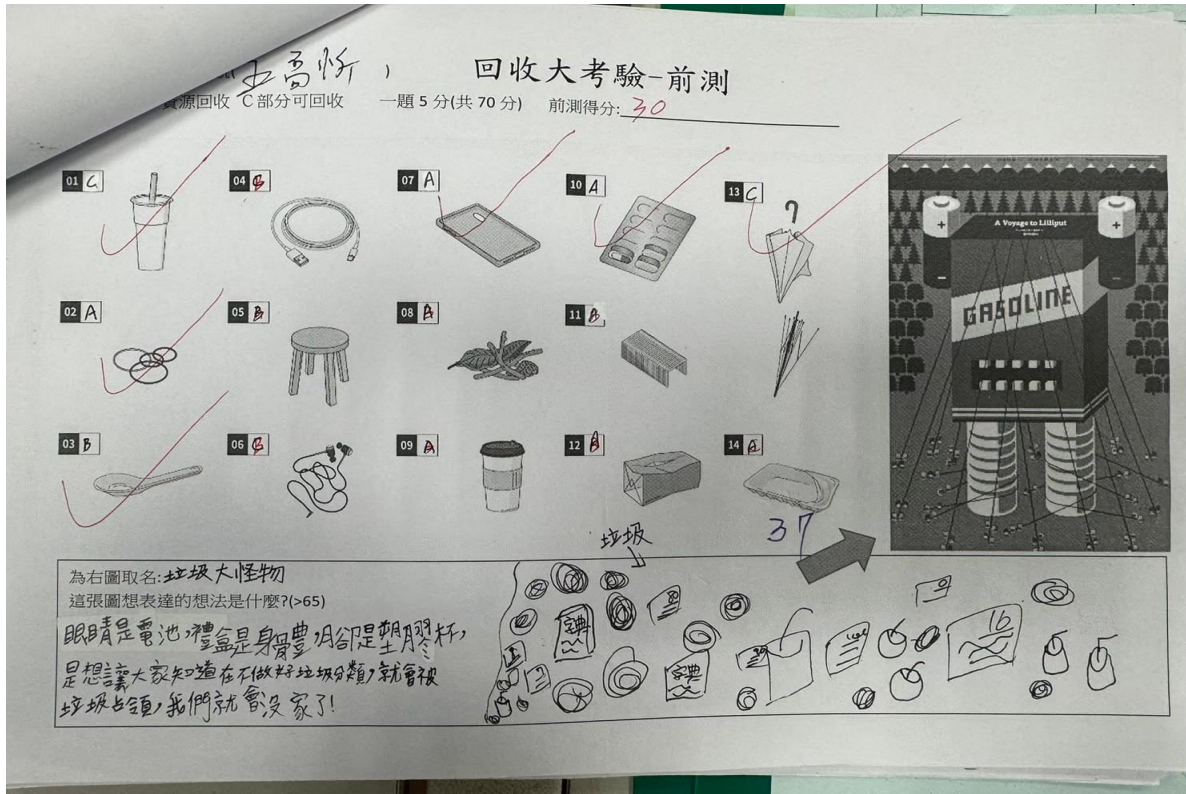 回收大考驗-前測
資源回收 C部分可回收 一題 5 分(共 70 分) 前測得分: 30
01 C
04
07 A
10 A
13 C
02 A
05 B
08
11 B
03 B
06
09 A
12
14
A Voyage to Lilliput
GASOLINE
垃圾
37
為右圖取名:垃圾大怪物
這張圖想表達的想法是什麼?(>65)
眼睛是電池,禮盒是身體,腳是塑膠杯,
是想讓大家知道在不做好垃圾分類,就會被
垃圾占領,我們就會沒家了!
字典
字典